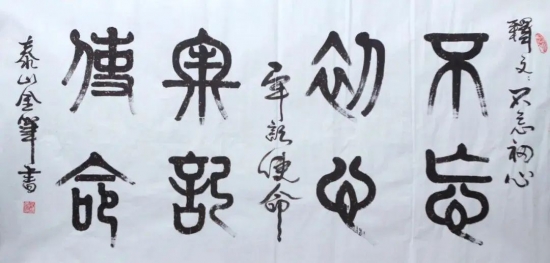 釋文：不忘初心
不忘
初心
牢記使命
牢記
使命
泰山金筆書